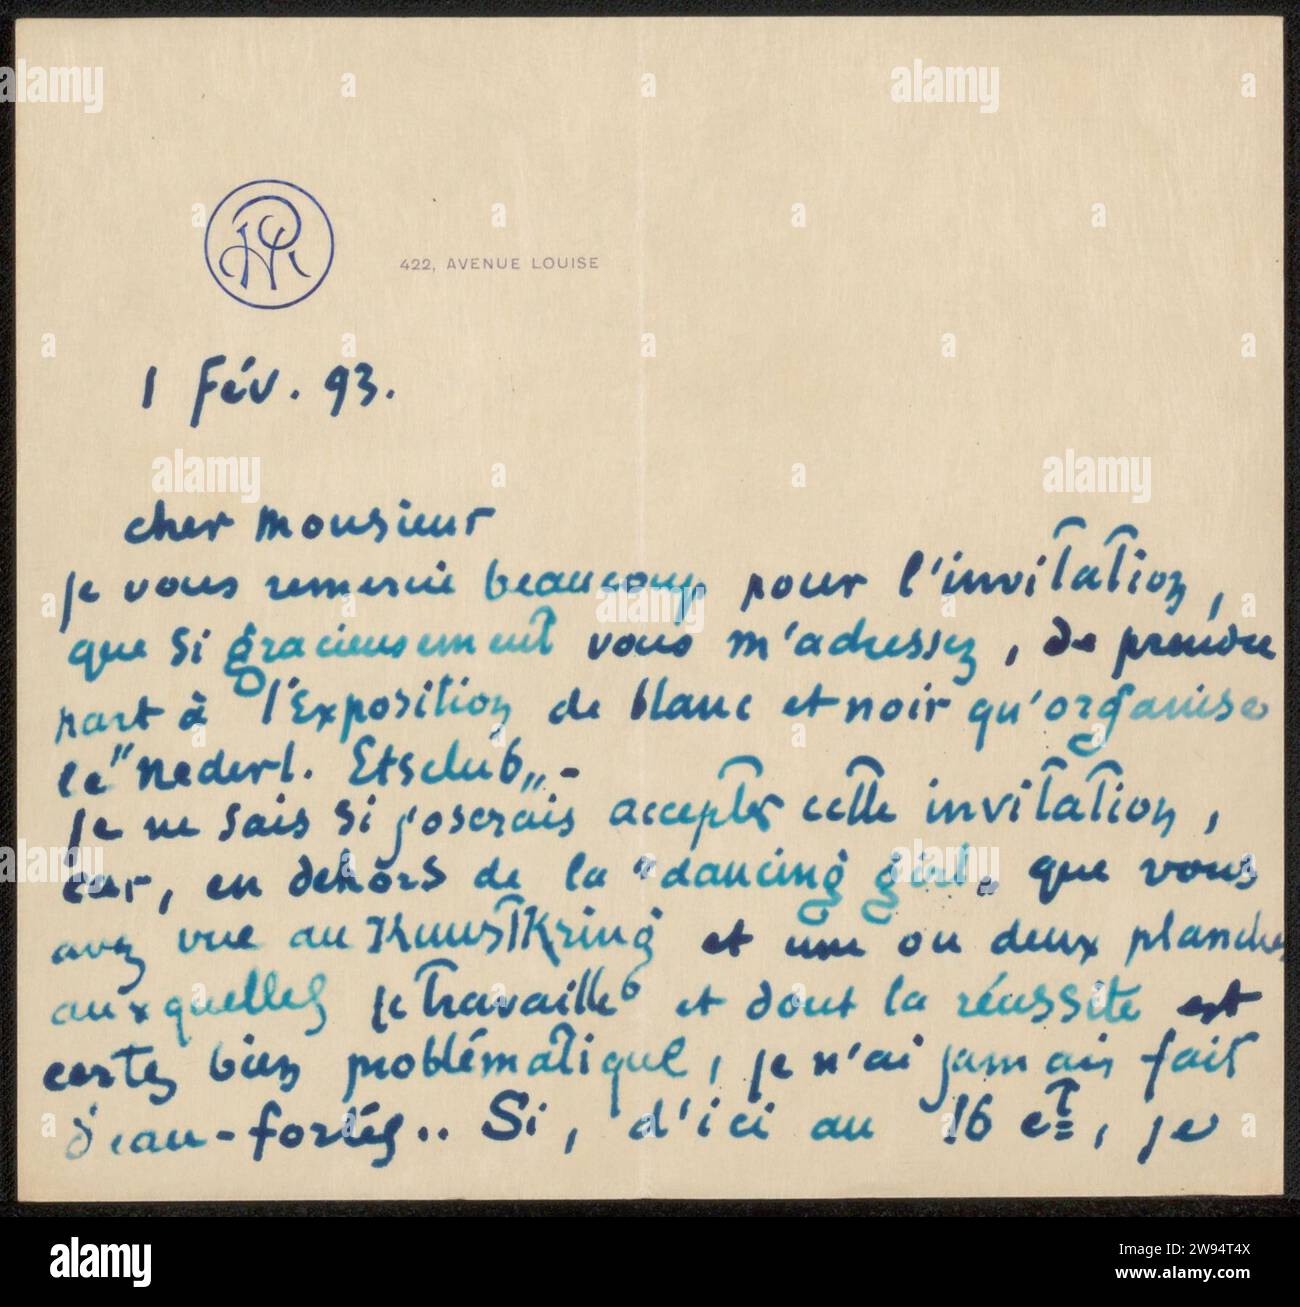 422, AVENUE LOUISE
1 Fév. 93.
cher Monsieur
je vous remercie beaucoup pour l'invitation,
que si gracieusement vous m'adressez, de prendre
part à l'Exposition de blanc et noir qu'organise
le "Nederl. Etsclub„-
je ne sais si j'oserais accepter cette invitation,
car, en dehors de la "dancing girl„ que vous
avez vue au KunstKring et une ou deux planches
auxquelles je travaille et dont la réussite est
certes bien problématique, je n'ai jamais fait
d'eau-fortes.. Si, d'ici au 16 ct, je
alamy
Image ID: 2W94T4X
www.alamy.com